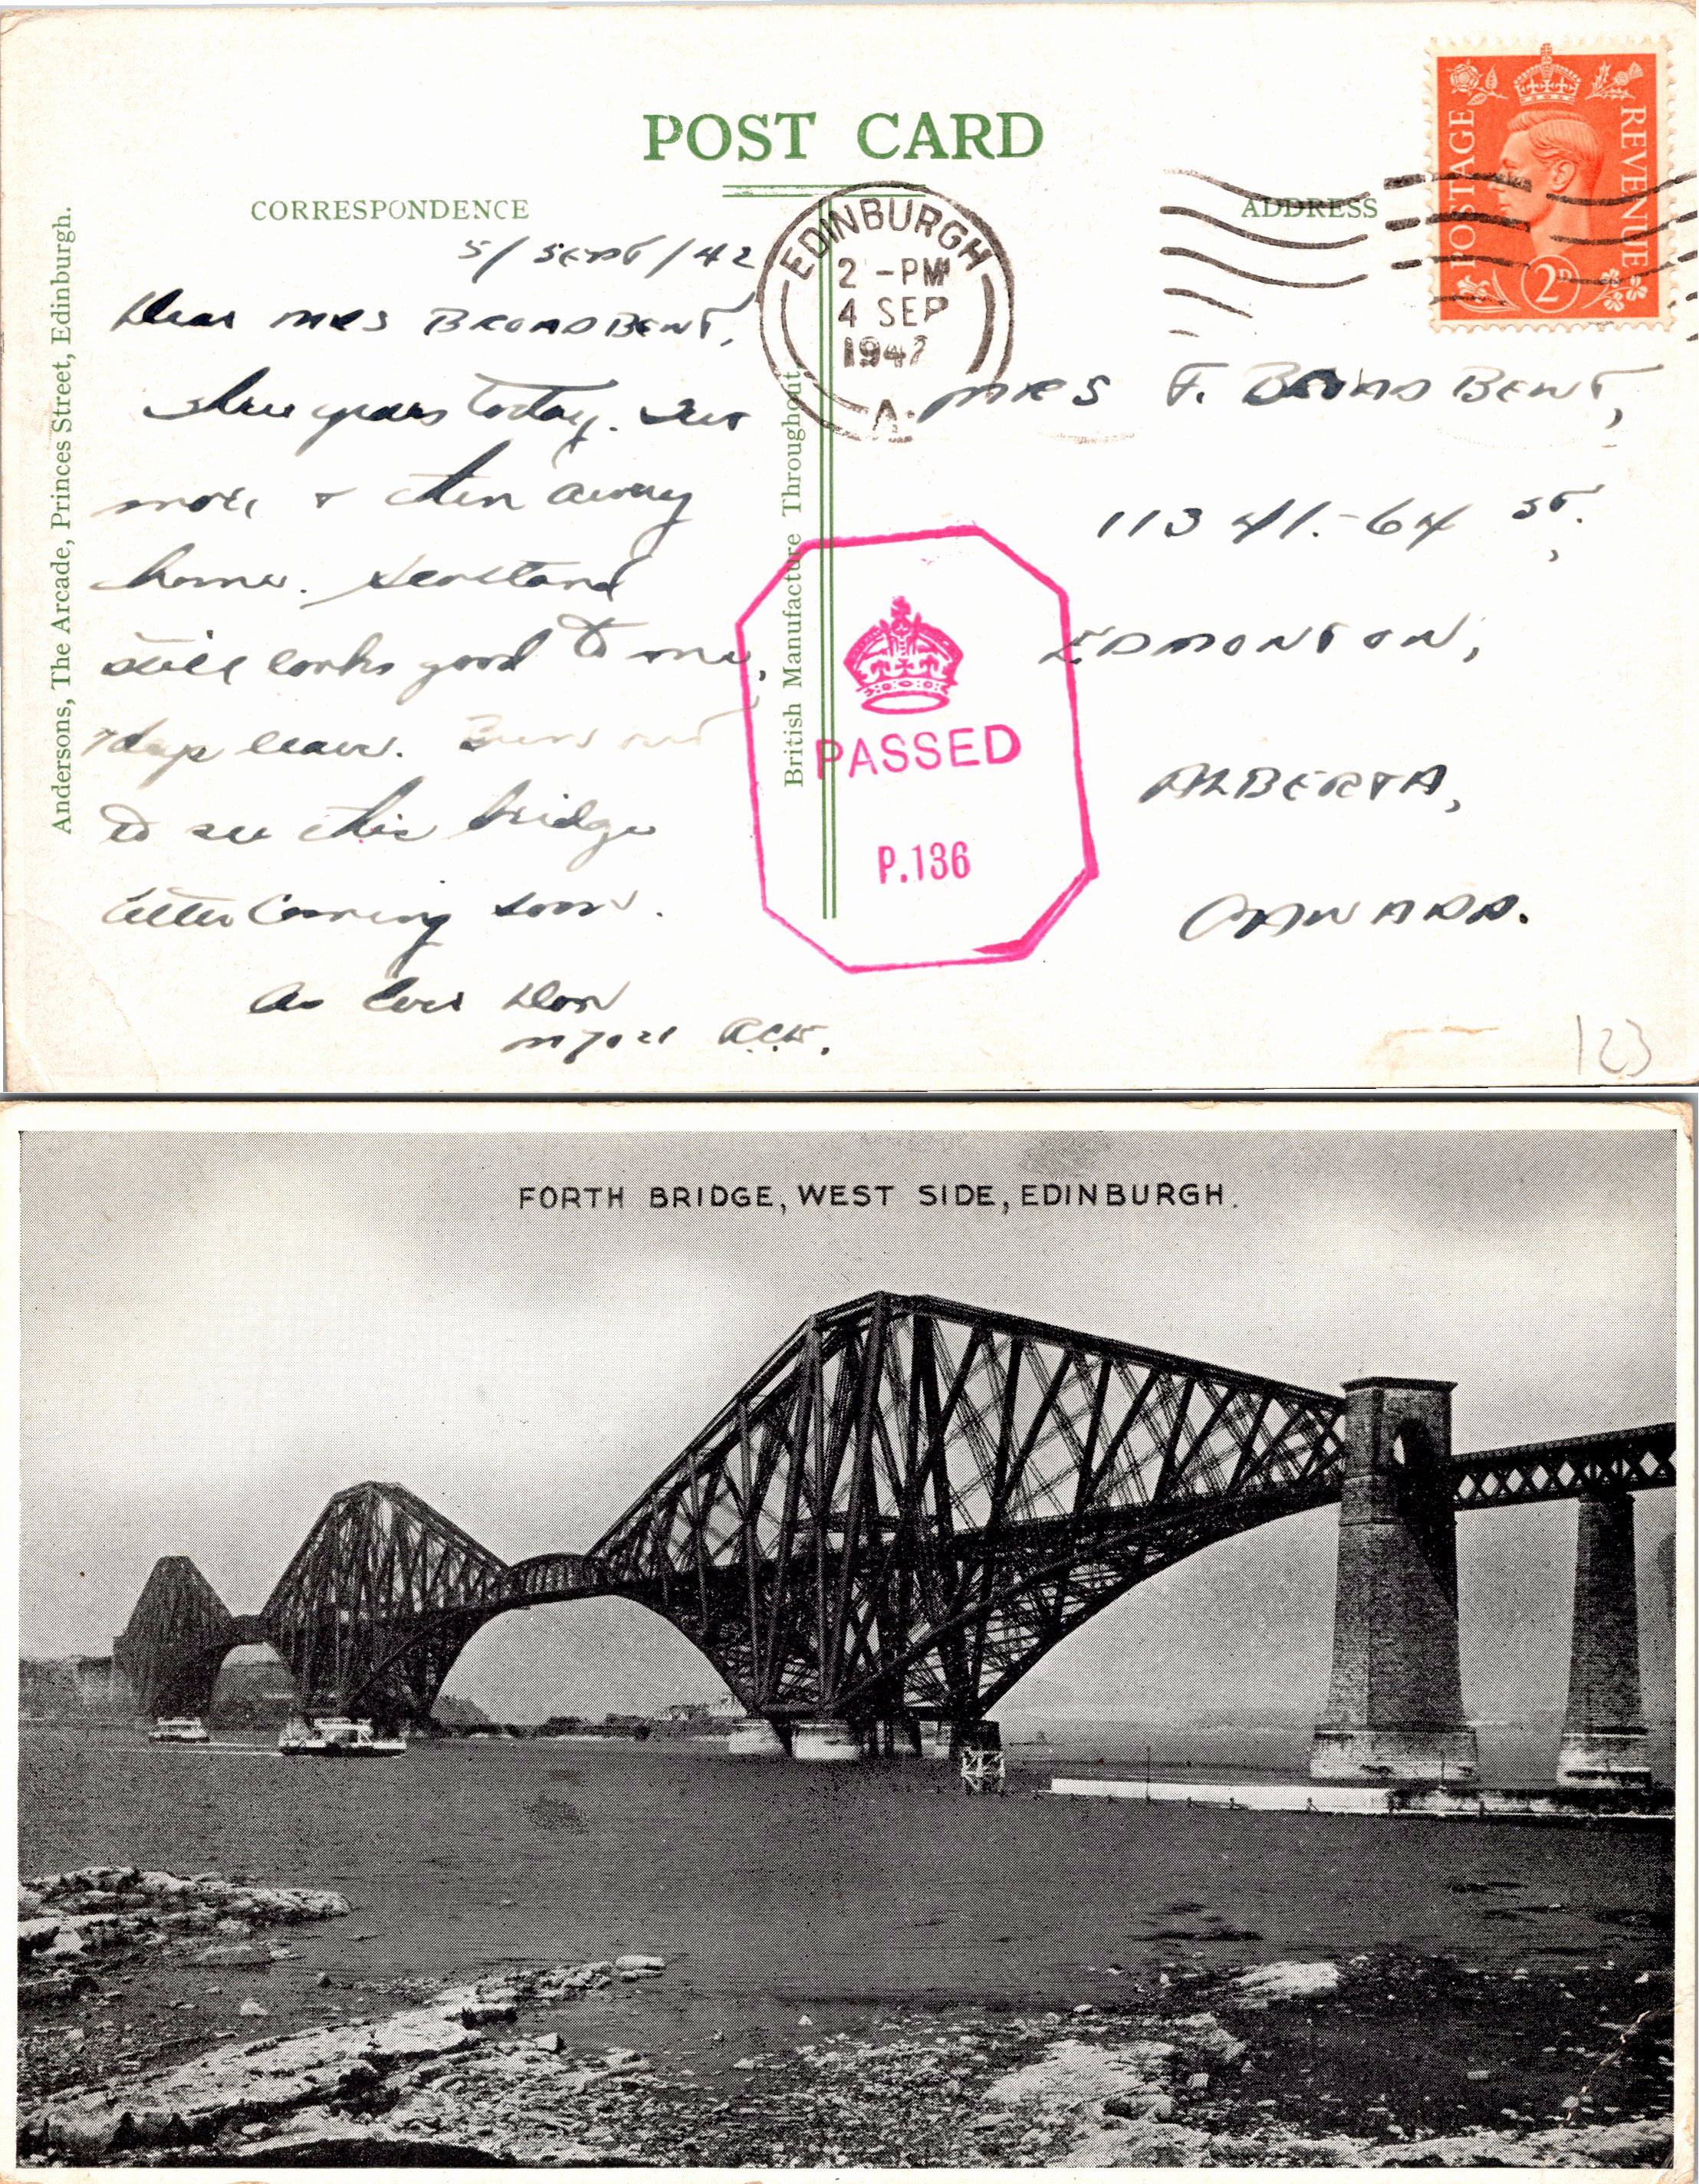 POST CARD
CORRESPONDENCE
ADDRESS
Andersons, The Arcade, Princes Street, Edinburgh.
British Manufacture Throughout.
POSTAGE
REVENUE
2D
EDINBURGH
2 - PM
4 SEP
1942
A.
5/SEPT/42
Dear MRS BROADBENT,
three years today. Two
more & then away
home. Scotland
still looks good to me,
7 days leave.
to see this bridge
letter coming soon.
As Ever Don
M7021 R.C.A.
MRS F. BROADBENT,
11341.-64 ST.,
EDMONTON,
ALBERTA,
CANADA.
PASSED
P.136
123
FORTH BRIDGE, WEST SIDE, EDINBURGH.